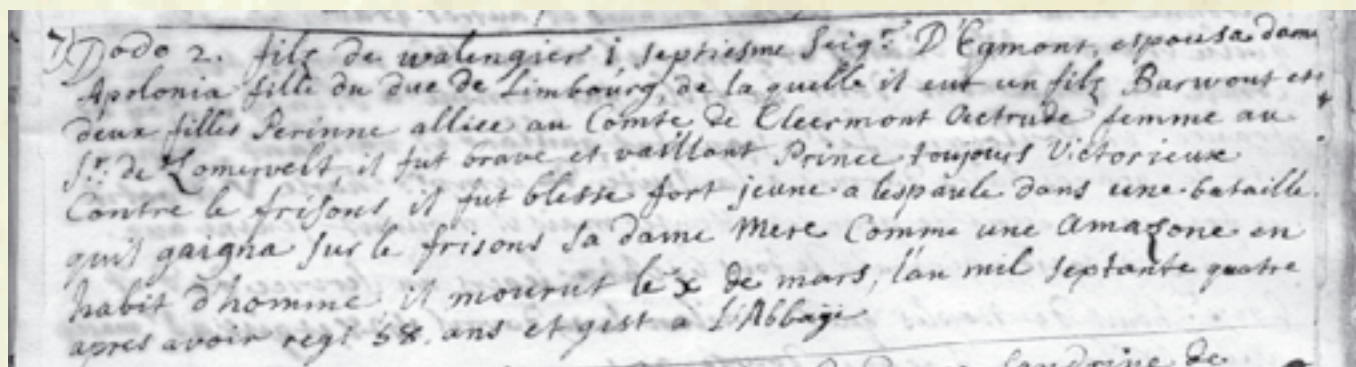 7) Dodo 2. filz de walengier i septiesme Seigr. D'Egmont, espousa dame
Apolonia fille du duc de Limbourg, de la quelle il eut un filz Barwout et
deux filles Perinne alliee au Comte de Cleermont Aetrude femme au
Sr. de Zomervelt, il fut brave et vaillant Prince toujours Victorieux
Contre le frisons, il fut blesse fort jeune a lespaule dans une bataille
quil gaigna sur le frisons sa dame Mere Comme une Amazone en
habit d'homme, il mourut le x de mars, l'an mil septante quatre
apres avoir regt 58. ans et gist a L'Abbaije
Sandrine de